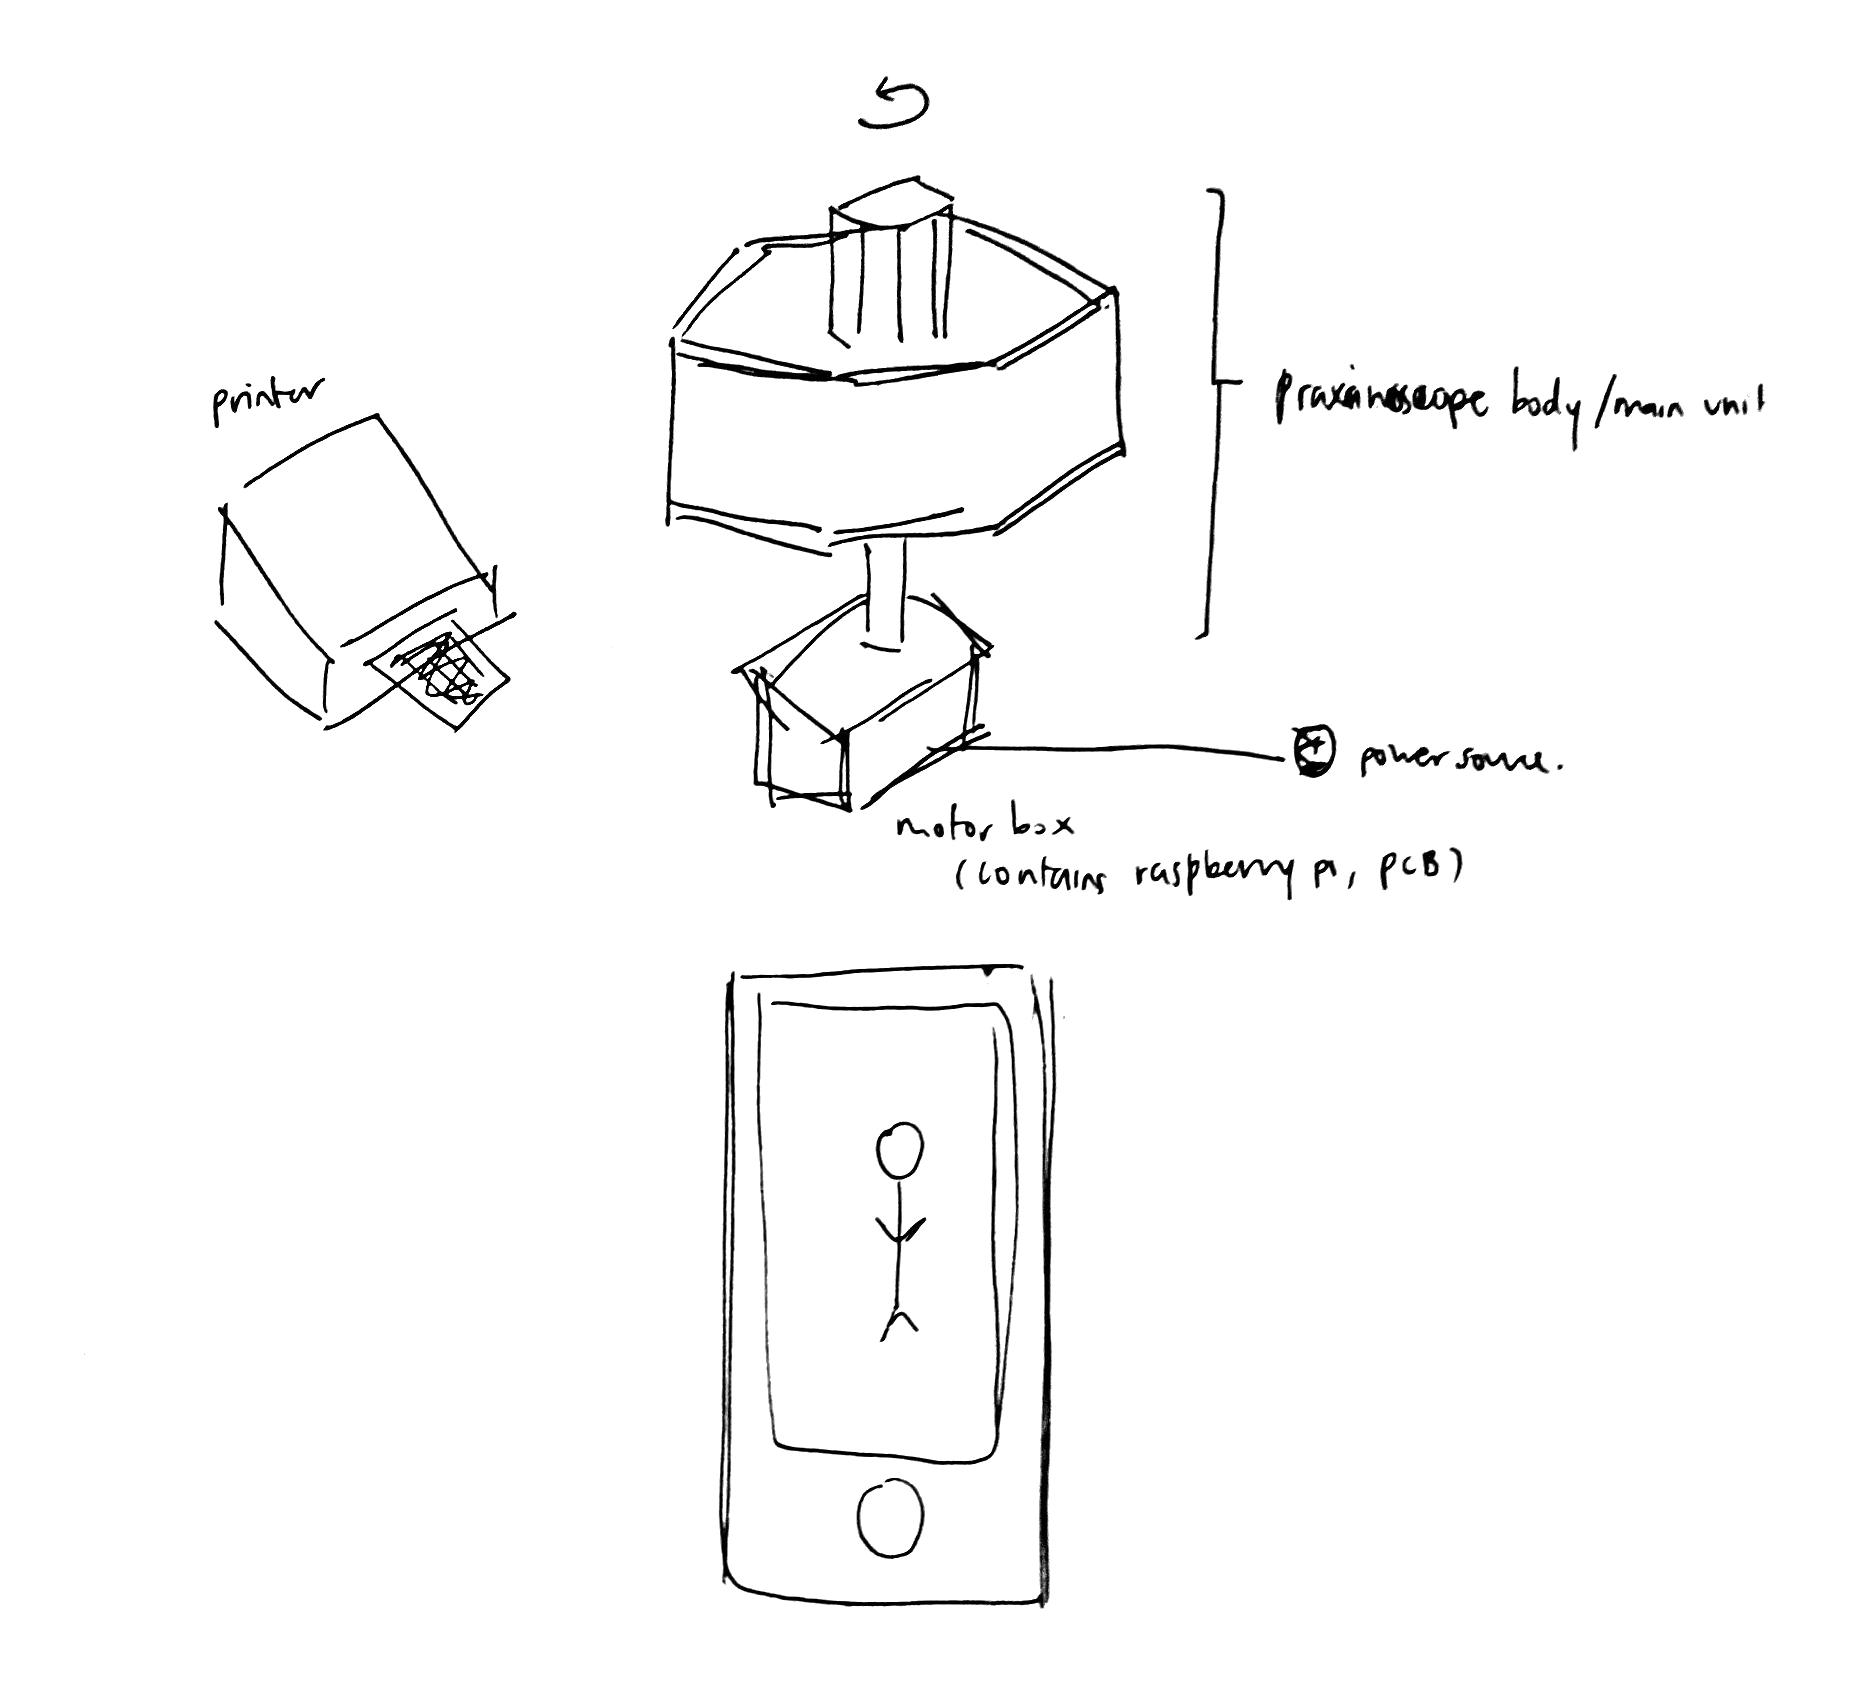 printer
praxinoscope body/main unit
power source.
motor box
(contains raspberry pi, PCB)